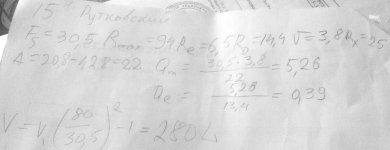 15 Рутковский
F/5 = 30,5. Rсоп = 94 Re = 6,5 Ro = 14,4 V = 3,8 Rx = 25
A = 20,8 - 1,28 = 22. Qm = 30,5 · 3,8 / 22 = 5,26
Qe = 5,26 / 13,4 = 0,39
V = V₁ (80 / 30,5)² - 1 = 280 L